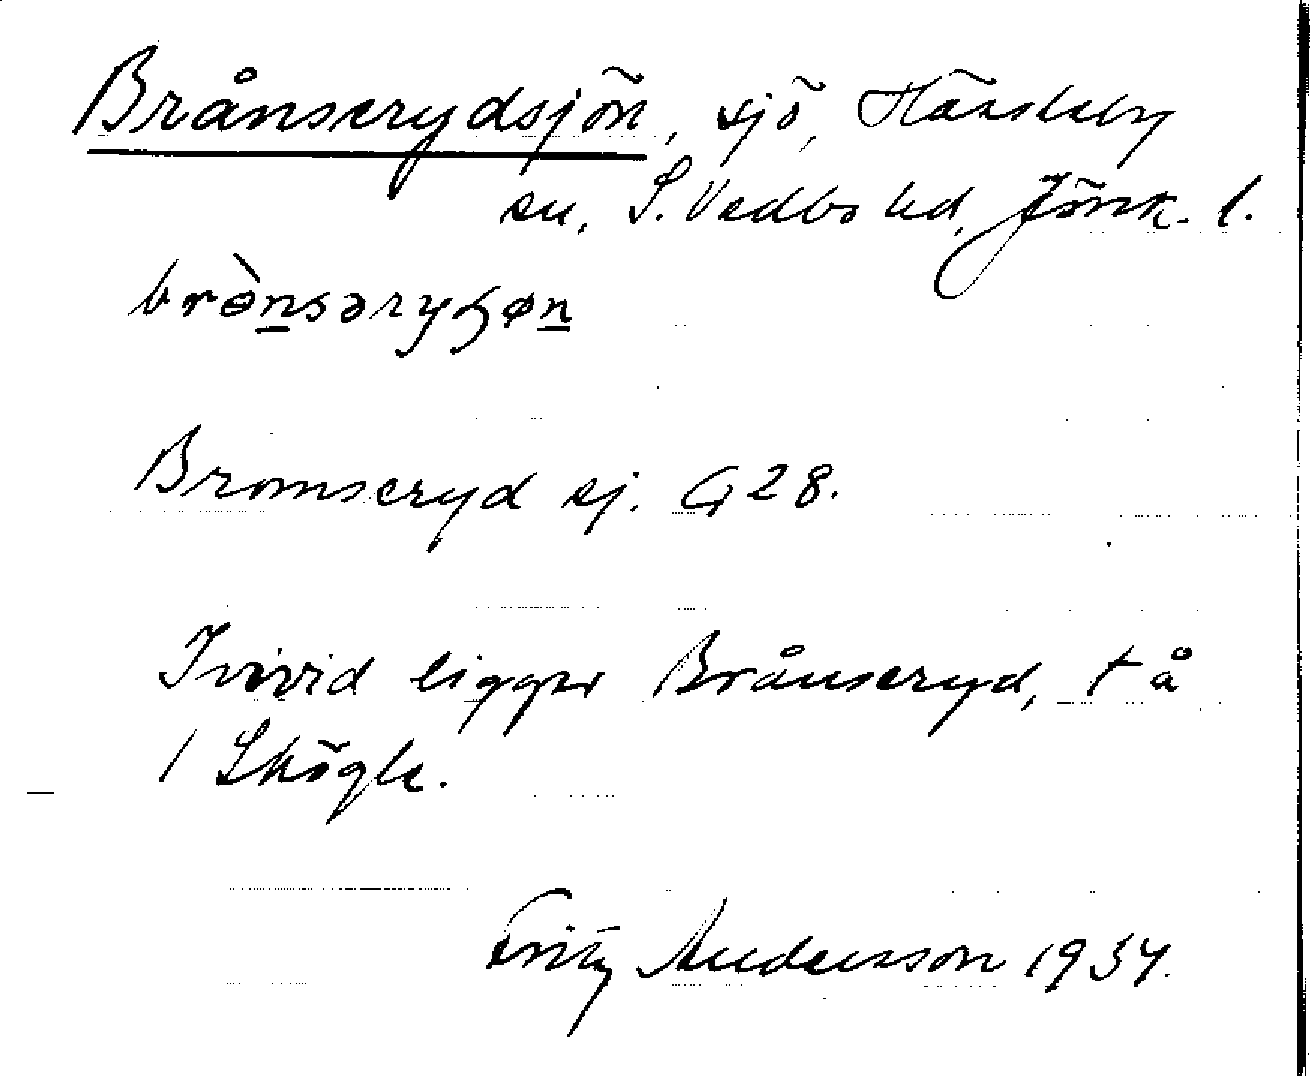 Brånserydsjön, sjö, Hässleby
sn, S. Vedbo hd, Jönk. l.
brə̀nsəryɧøn
Bromseryd sj. G 28.
Invid ligger Brånseryd, t å
1 Skögle.
Fritz Andersson 1934.